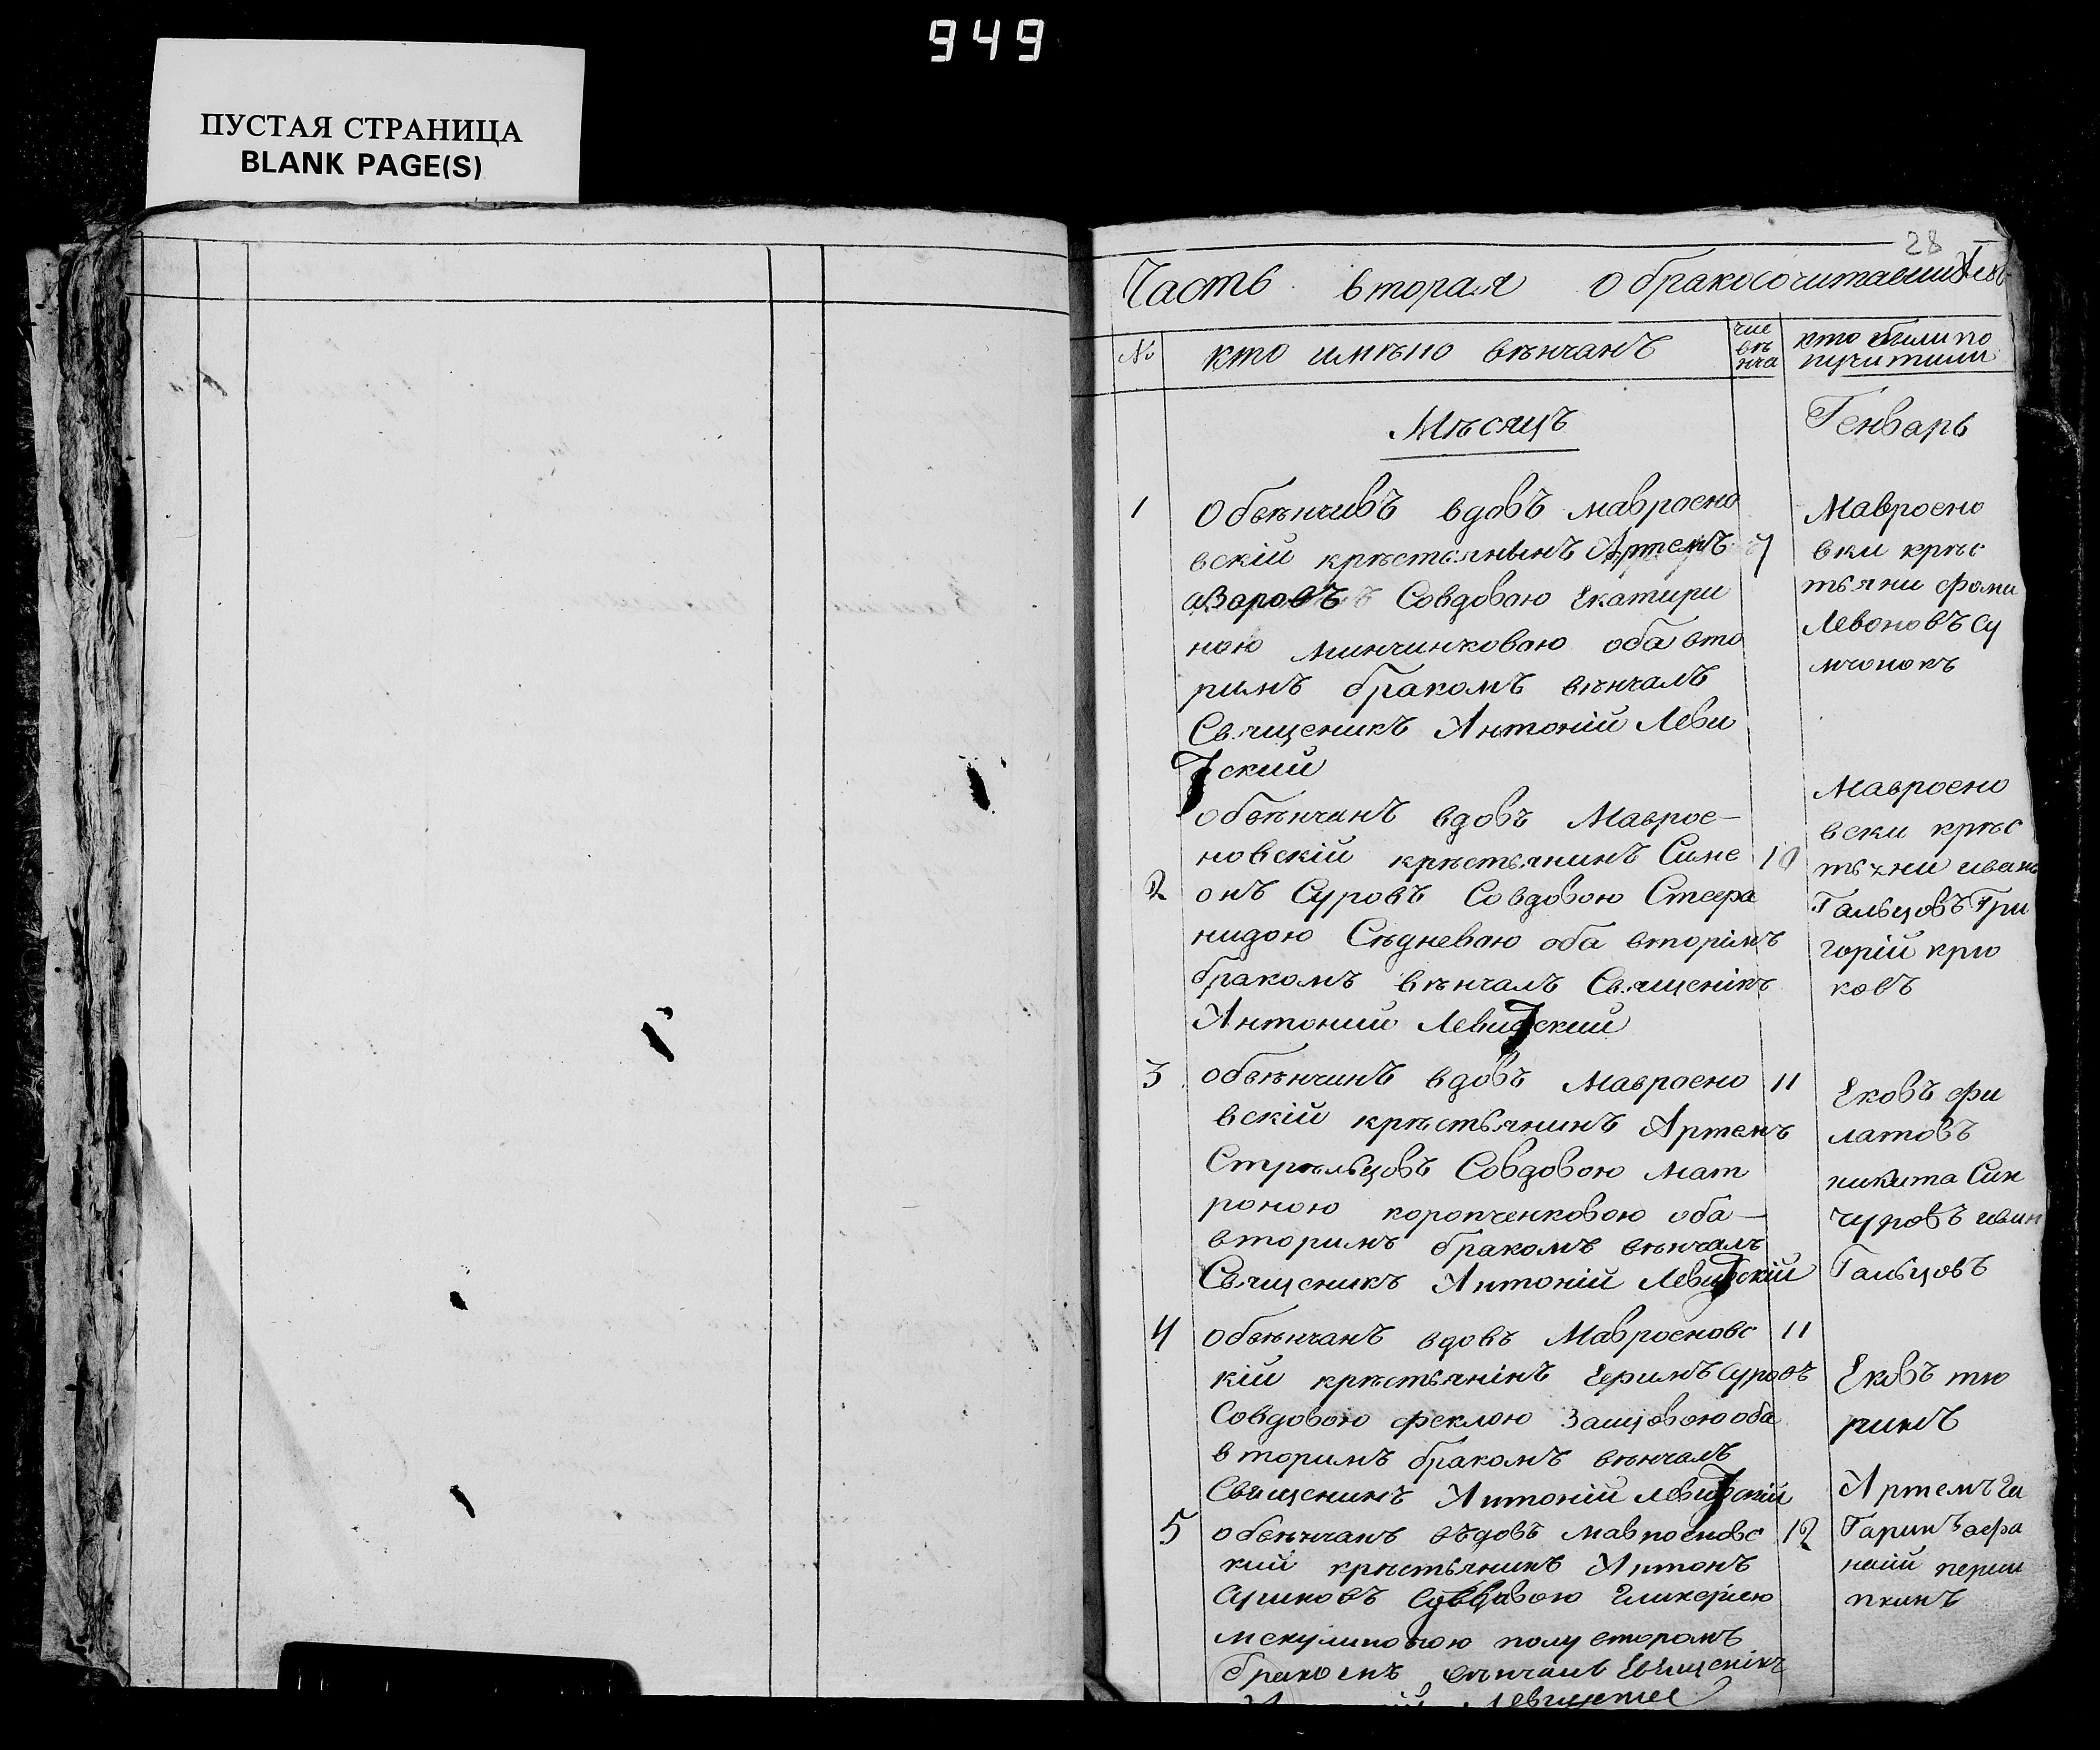 949
ПУСТАЯ СТРАНИЦА
BLANK PAGE(S)
28
Часть вторая о бракосочитавшихся
№ кто имѣно вѣнчанъ чис вѣ нча кто были по ручители
Мѣсяцъ Генварь
1 Обвѣнчивъ вдовъ мавроено
вскій крѣстьянынъ Артемъ 7
Совдовою Екатири
ною минчинковою оба вто
римъ бракомъ вѣнчалъ
Священикъ Антоній Леви
тский
Мавроено
вски крѣс
тьяни фома
Левоновъ су
мчонокъ
2 обвѣнчанъ вдовъ Маврое-
новскій крѣстьянинъ Симе 10
онъ Суровъ Совдовою Стефа
нидою Сѣдневою оба вторімъ
бракомъ вѣнчалъ Священікъ
Антоний Левитский
Мавроено
вски крѣс
тьяни иванъ
Гальцовъ Гри
горій крю
ковъ
3 обвѣнчинъ вдовъ мавроено 11
вскій крѣстьянинъ Артемъ
Стрѣльцовъ Совдовою мат
роною коропченковою оба-
вторимъ бракомъ вѣнчалъ
Священикъ Антоній Левитскій
Ековъ фи
латовъ
никита Син
чуровъ иван
Гальцовъ
4 обвѣнчанъ вдовъ Мавроеновс 11
кій крѣстьянінъ Ефимъ Суровъ
Совдовою феклою Защовою оба
вторимъ бракомъ вѣнчалъ
Священикъ Антоній левитскій
Ековъ тю
ринъ
5 обвѣнчанъ вѣдовъ мавроеновс 12
кий крѣстьянинъ Антонъ
Сушковъ Гликеріею
полувторомъ
бракомъ вѣнчалъ Священікъ
Артемъ Га
Гаринъ афа
насій перши
пкинъ